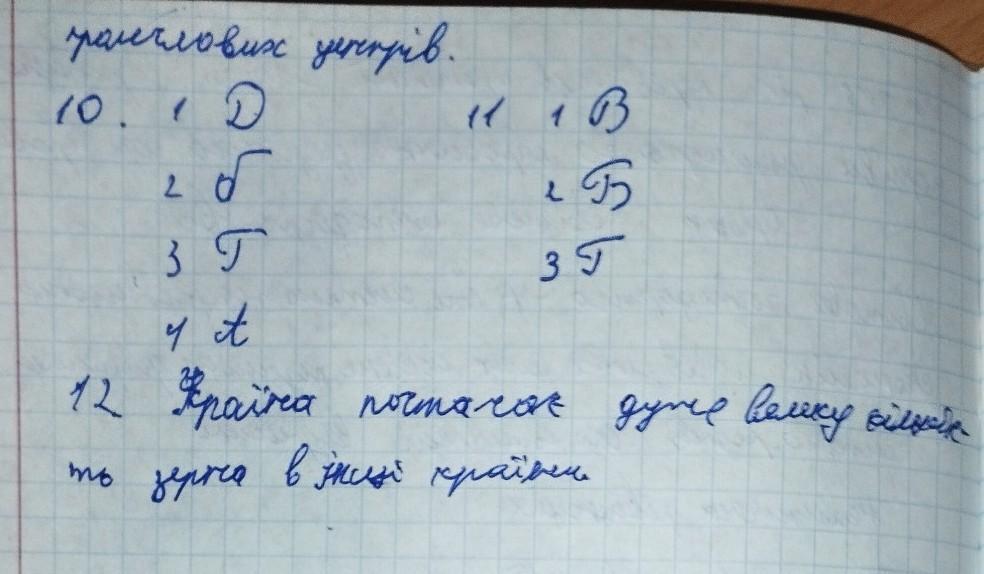 промислових центрів.
10. 1 Д 11 1 В
2 б 2 Б
3 Г 3 Г
4 А
12 Україна постачає дуже велику кількіс-
ть зерна в інші країни